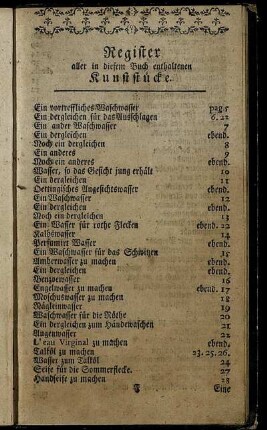 Register
aller in diesem Buch enthaltenen
Kunststücke.
Ein vortreffliches Waschwasser pag. 5
Ein dergleichen für das Ausschlagen 6. 22
Ein ander Waschwasser 7
Ein dergleichen ebend.
Noch ein dergleichen 8
Ein anderes 9
Noch ein anderes ebend.
Wasser, so das Gesicht jung erhält 10
Ein dergleichen 11
Oettingisches Angesichtswasser ebend.
Ein Waschwasser 12
Ein dergleichen ebend.
Noch ein dergleichen 13
Ein Wasser für rothe Flecken ebend. 22
Kalbswasser 14
Perfumirt Wasser ebend.
Ein Waschwasser für das Schwitzen 15
Amberwasser zu machen ebend.
Ein dergleichen ebend.
Benzoewasser 16
Engelwasser zu machen ebend. 17
Moschuswasser zu machen 18
Nägleinwasser 19
Waschwasser für die Röthe 20
Ein dergleichen zum Händewaschen 21
Augenwasser 22
L'eau Virginal zu machen ebend.
Talköl zu machen 23. 25. 26.
Wasser zum Talköl 24
Seife für die Sommerflecke. 27
Handseife zu machen 28
Eine